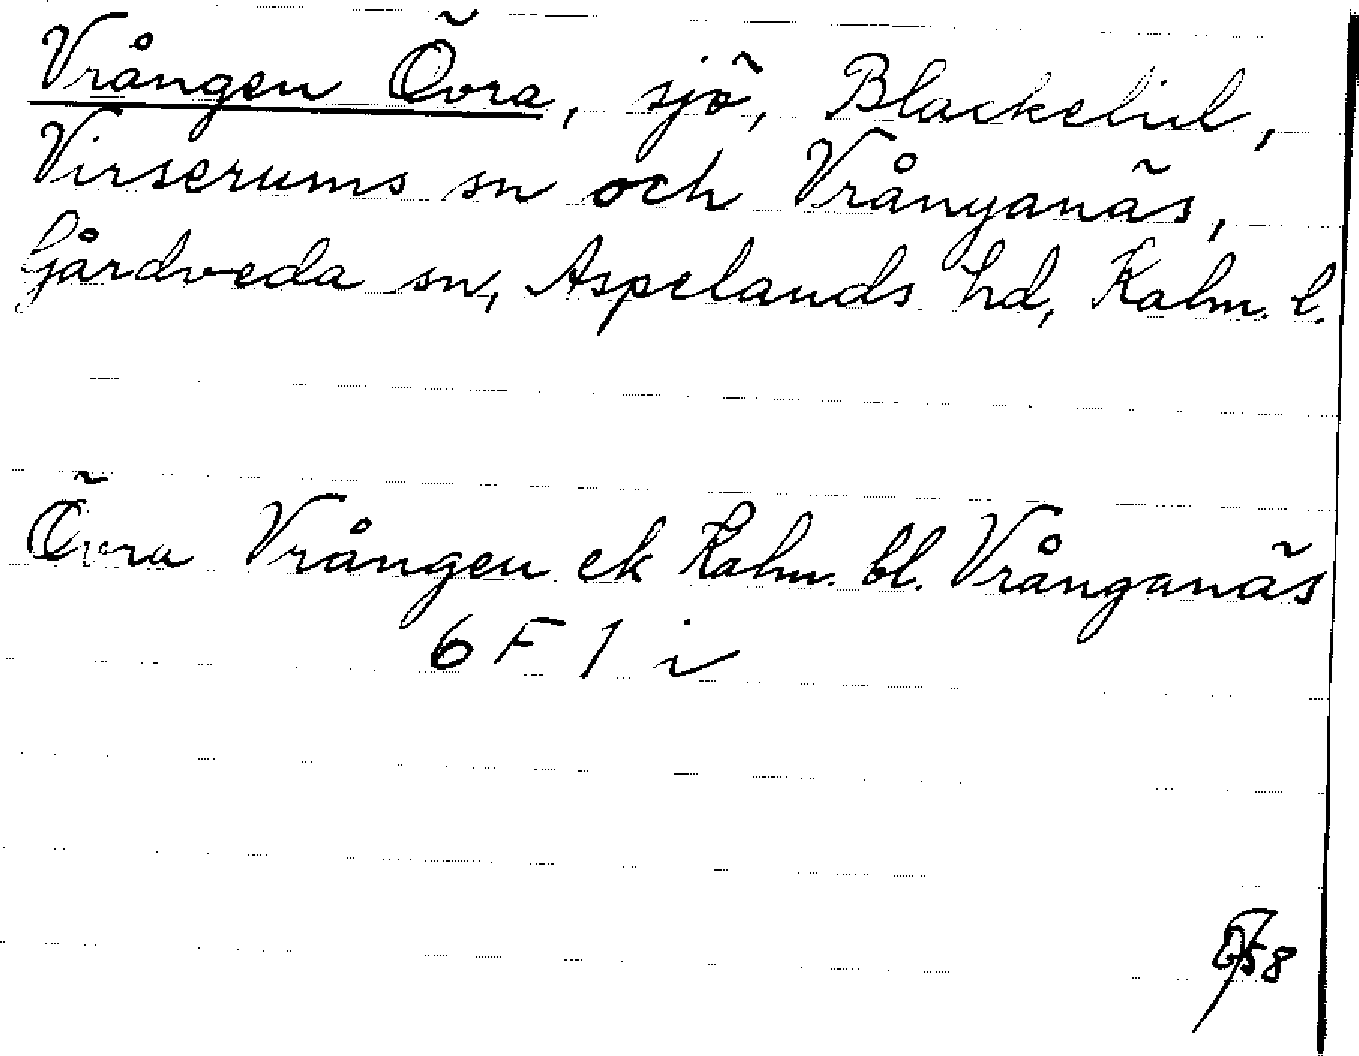 Vrången Övra, sjö, Blackelid,
Virserums sn och Vrånganäs,
Gårdveda sn, Aspelands hd, Kalm. l.
Övra Vrången ek Kalm. bl. Vrånganäs
6 F 1 i